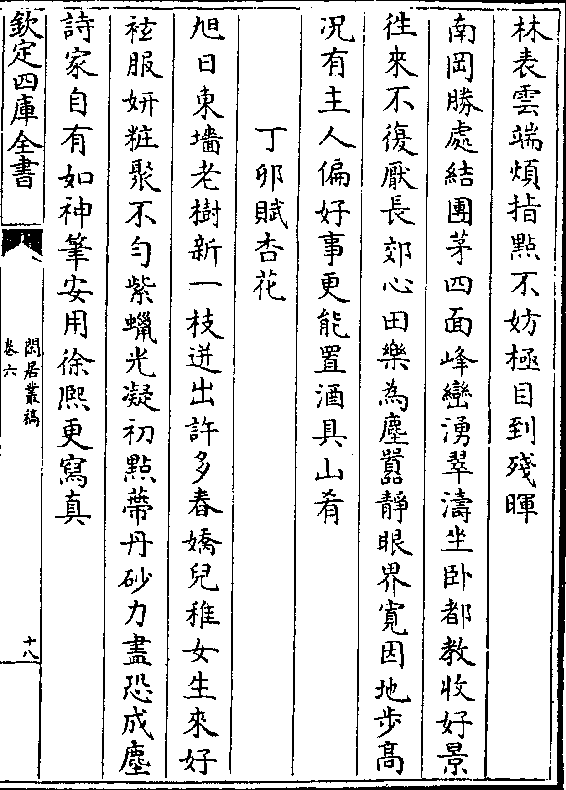 林表雲端煩指點不妨極目到殘暉
南岡勝處結團茅四面峰巒湧翠濤坐卧都教收好景
徃來不復厭長郊心田樂為塵囂靜眼界寛因地步髙
况有主人偏好事更能置酒具山肴
丁卯賦杏花
旭日東墻老樹新一枝迸出許多春嬌兒稚女生來好
袨服妍粧聚不勻紫蠟光凝初點蔕丹砂力盡恐成塵
詩家自有如神筆安用徐熈更寫真
欽定四庫全書
閒居叢稿
卷六
十八